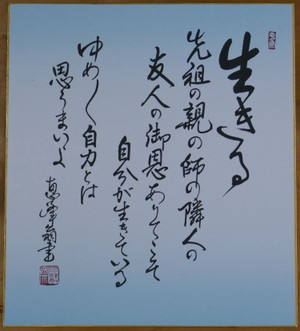 生きる
先祖の親の師の隣人の
友人の御恩ありてこそ
自分が生きている
ゆめ〱自力とは
思うまいよ